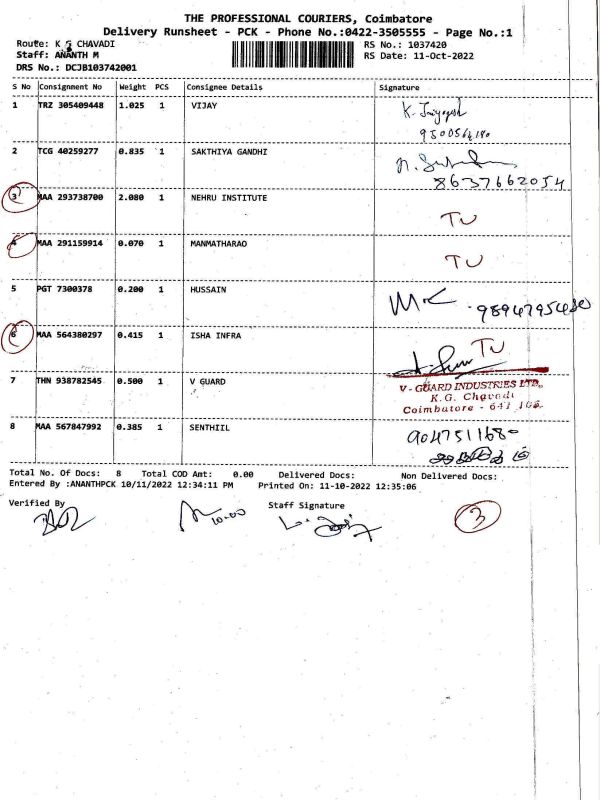 THE PROFESSIONAL COURIERS, Coimbatore
Delivery Runsheet - PCK - Phone No.:0422-3505555 - Page No.:1
Route: K G CHAVADI
RS No.: 1037420
Staff: ANANTH M
RS Date: 11-Oct-2022
DRS No.: DCJB103742001
S No Consignment No Weight PCS Consignee Details Signature
1 TRZ 305409448 1.025 1 VIJAY
2 TCG 40259277 0.835 1 SAKTHIYA GANDHI
8637662054
3 MAA 293738700 2.080 1 NEHRU INSTITUTE TU
4 MAA 291159914 0.070 1 MANMATHARAO TU
5 PGT 7300378 0.200 1 HUSSAIN
6 MAA 564380297 0.415 1 ISHA INFRA TU
7 THN 938782545 0.500 1 V GUARD
V - GUARD INDUSTRIES LTD.
K.G. Chavadi
Coimbatore - 641 105.
8 MAA 567847992 0.385 1 SENTHIIL
Total No. Of Docs: 8 Total COD Amt: 0.00 Delivered Docs: Non Delivered Docs:
Entered By :ANANTHPCK 10/11/2022 12:34:11 PM Printed On: 11-10-2022 12:35:06
Verified By
Staff Signature
10.00
3